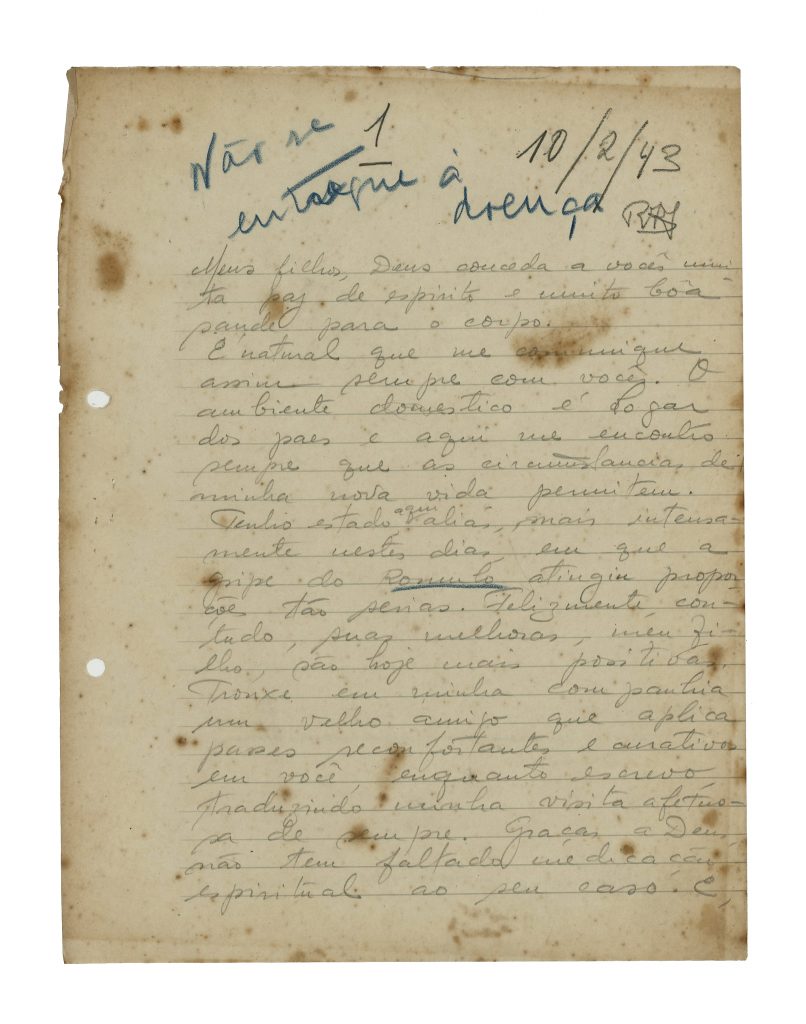 Não se
1
10/2/43
entregue à
doença
Meus filhos, Deus conceda a vocês mui-
ta paz de espirito e muito bôa
saúde para o corpo.
É natural que me comunique
assim sempre com vocês. O
ambiente domestico é logar
dos paes e aqui me encontro
sempre que as circumstancias de
minha nova vida permitem.
Tenho estado, aqui aliás, mais intensa-
mente nestes dias, em que a
gripe do Romulo atingiu propor-
ções tão serias. Felizmente, con-
tudo, suas melhoras, meu fi-
lho, são hoje mais positivas.
Trouxe em minha companhia
um velho amigo que aplica
passes reconfortantes e curativos
em você, enquanto escrevo,
traduzindo minha visita afetuo-
sa de sempre. Graças a Deus
não tem faltado medicação
espiritual ao seu caso. E,